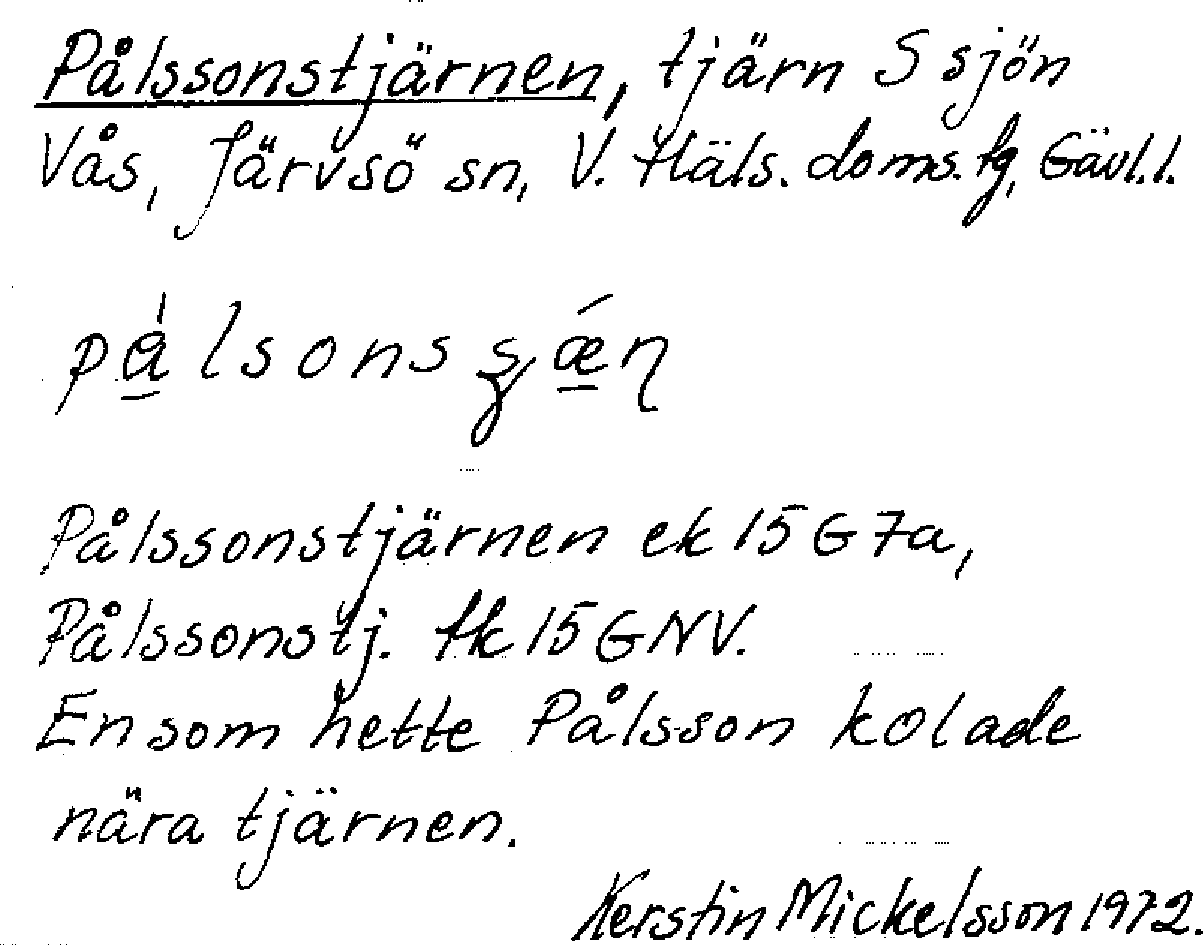 Pålssonstjärnen, tjärn S sjön
Vås, Järvsö sn, V. Häls. doms. fg, Gävl.l.
Pålssonstjärnen ek 15 G 7a,
Pålssonstj. tk 15 G NV.
En som hette Pålsson kolade
nära tjärnen.
Kerstin Mickelsson 1972.